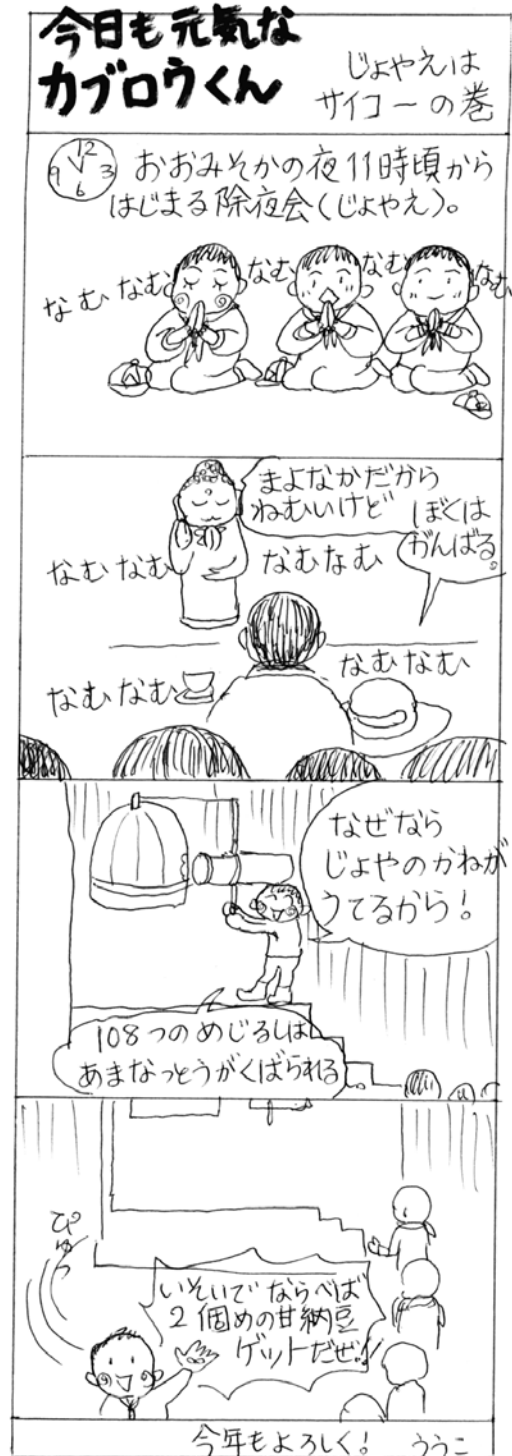 今日も元気な
カブロウくん
じょやえは
サイコーの巻
12
9 3
6
おおみそかの夜11時頃から
はじまる除夜会(じょやえ)。
なむなむ
なむ
なむ
なむ
まよなかだから
ねむいけど
ぼくは
がんばる。
なむなむ
なむなむ
なむなむ
なむなむ
なぜなら
じょやのかねが
うてるから!
108つのめじるしは
あまなっとうがくばられる
ぴゅっ
いそいでならべば
2個めの甘納豆
ゲットだぜ!!
今年もよろしく! ううこ